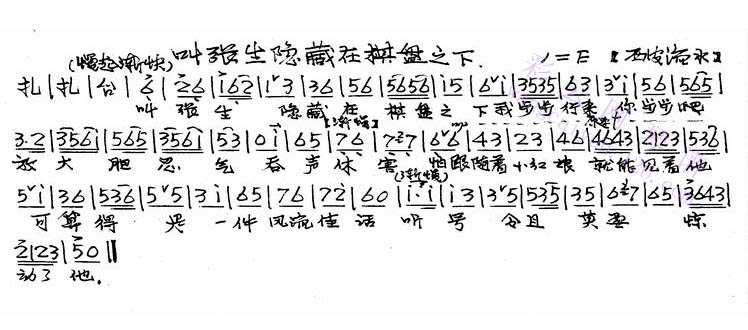 (慢起渐快) 叫张生隐藏在棋盘之下. 1=E 【西皮流水】
扎|扎|台|6|26|162|1˅3|36|56|5656|i5|6˅i|3535|63|3˅i|56|565|
叫 张 生 隐 藏 在 棋 盘 之 下 我 步 步 行来 你 步 步 吧
3.2|3561|565|3561|53|0i|65|76|7276|6˅6|43|23|46|4643|2123|536|
放 大 胆 忍 气 吞 声 休 害 怕 跟 随 着 小 红 娘 就 能 见 着 他
5˅i|36|536|5˅5|3i|65|76|72|60|i·i|i3|3˅5|535|35|6˅7|65|3643|
可 算 得 是 一 件 风 流 佳 话 听 号 令 且 莫 要 惊
2123|50‖
动了 他.